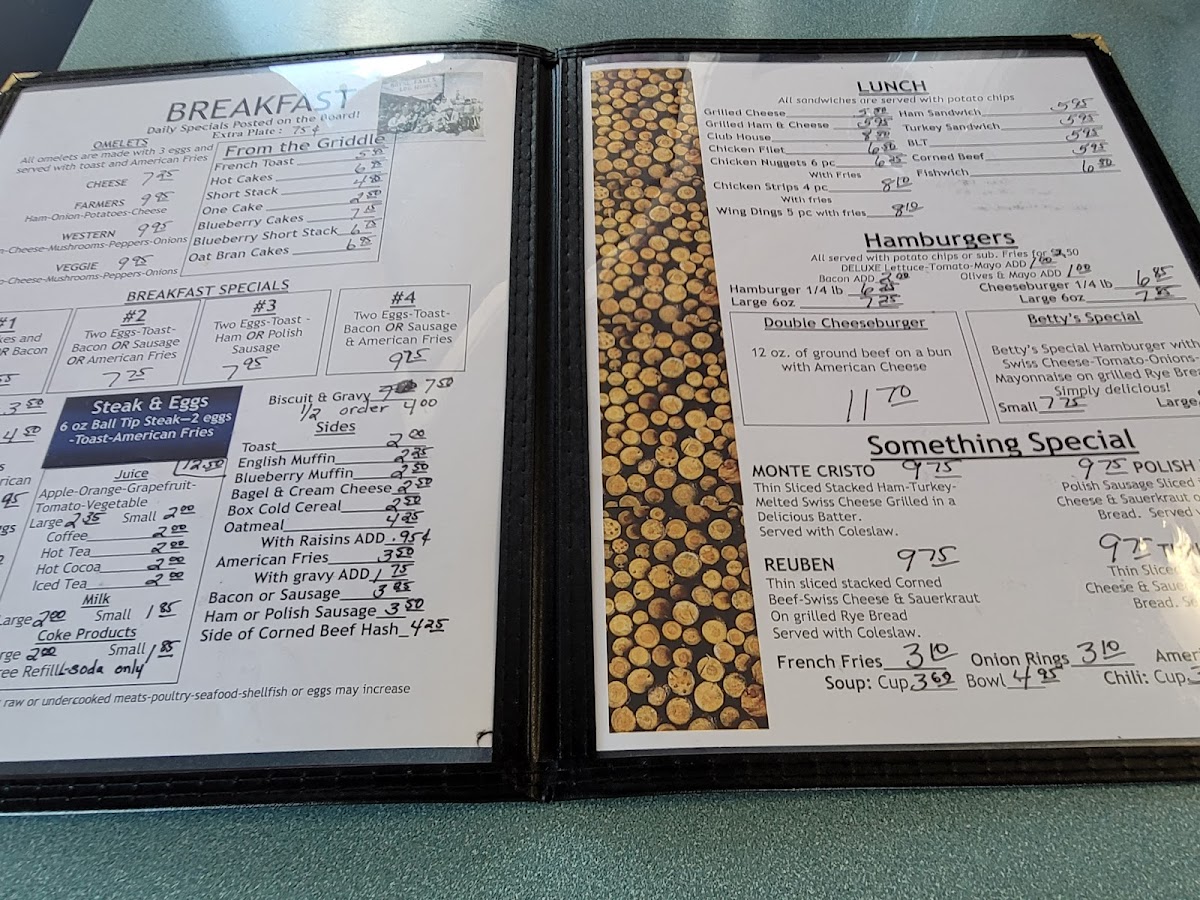 BREAKFAST
Daily Specials Posted on the Board!
Extra Plate: 75¢
OMELETS
All omelets are made with 3 eggs and
served with toast and American Fries
CHEESE
FARMERS 9 95
Ham-Onion-Potatoes-Cheese
WESTERN 9 95
-Cheese-Mushrooms-Peppers-Onions
VEGGIE 9 95
-Cheese-Mushrooms-Peppers-Onions
From the Griddle
French Toast
Hot Cakes
Short Stack
One Cake
Blueberry Cakes
Blueberry Short Stack
Oat Bran Cakes
BREAKFAST SPECIALS
#1
OR Bacon
#2
Two Eggs-Toast-
Bacon OR Sausage
OR American Fries
7 75
#3
Two Eggs-Toast -
Ham OR Polish
Sausage
7 95
#4
Two Eggs-Toast-
Bacon OR Sausage
& American Fries
9 75
3 50
4 50
Steak & Eggs
6 oz Ball Tip Steak—2 eggs
-Toast-American Fries
12.50
Juice
Apple-Orange-Grapefruit-
Tomato-Vegetable
Large 2 35 Small 2 00
Coffee 2 00
Hot Tea 2 00
Hot Cocoa 2 00
Iced Tea 2 00
Milk
Large 2 00 Small 1 85
Coke Products
2 00 Small 1 85
Free Refill-soda only
Biscuit & Gravy 7 50
1/2 order 4 00
Sides
Toast 2 00
English Muffin 2 25
Blueberry Muffin 2 50
Bagel & Cream Cheese 2 50
Box Cold Cereal 2 50
Oatmeal 4 25
With Raisins ADD .95¢
American Fries 3 50
With gravy ADD 1 75
Bacon or Sausage 3 85
Ham or Polish Sausage 3 50
Side of Corned Beef Hash 4 25
raw or undercooked meats-poultry-seafood-shellfish or eggs may increase
LUNCH
All sandwiches are served with potato chips
Grilled Cheese 5 50
Grilled Ham & Cheese 5 95
Club House 8 50
Chicken Filet 6 50
Chicken Nuggets 6 pc 6 25
With Fries
Chicken Strips 4 pc 8 10
With fries
Wing Dings 5 pc with fries 8 10
Ham Sandwich 5 95
Turkey Sandwich 5 95
BLT 5 95
Corned Beef 5 95
Fishwich 6 80
Hamburgers
All served with potato chips or sub. Fries for \$2.50
DELUXE Lettuce-Tomato-Mayo ADD 1 00
Bacon ADD 2 00 Olives & Mayo ADD 1 00
Hamburger 1/4 lb Cheeseburger 1/4 lb 6 85
Large 6oz 7 25 Large 6oz 7 85
Double Cheeseburger
12 oz. of ground beef on a bun
with American Cheese
11 70
Betty's Special
Betty's Special Hamburger with
Swiss Cheese-Tomato-Onions
Mayonnaise on grilled Rye
Simply delicious!
Small 7 75 Large
Something Special
MONTE CRISTO 9 75
Thin Sliced Stacked Ham-Turkey-
Melted Swiss Cheese Grilled in a
Delicious Batter.
Served with Coleslaw.
9 75 POLISH
Polish Sausage Sliced
Cheese & Sauerkraut
Bread. Served
REUBEN 9 75
Thin sliced stacked Corned
Beef-Swiss Cheese & Sauerkraut
On grilled Rye Bread
Served with Coleslaw.
9 75
Thin Sliced
Cheese &
Bread.
French Fries 3 10 Onion Rings 3 10
Soup: Cup 3 60 Bowl 4 95 Chili: Cup